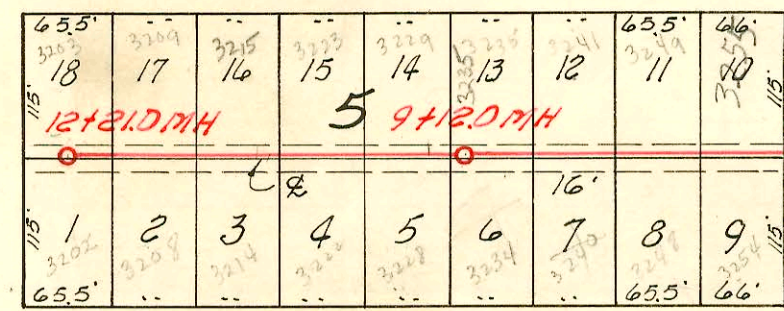 65.5' .. .. .. .. .. .. 65.5' 66'
3203 3209 3215 3223 3229 3235 3235 3241 3249 3255
18 17 16 15 14 13 12 11 10
115' 115'
12+21.0 MH 5 9+12.0 MH
℄ 16'
1 2 3 4 5 6 7 8 9
115' 115'
3202 3208 3214 3228 3234 3240 3248 3254
65.5' .. .. .. .. .. .. 65.5' 66'